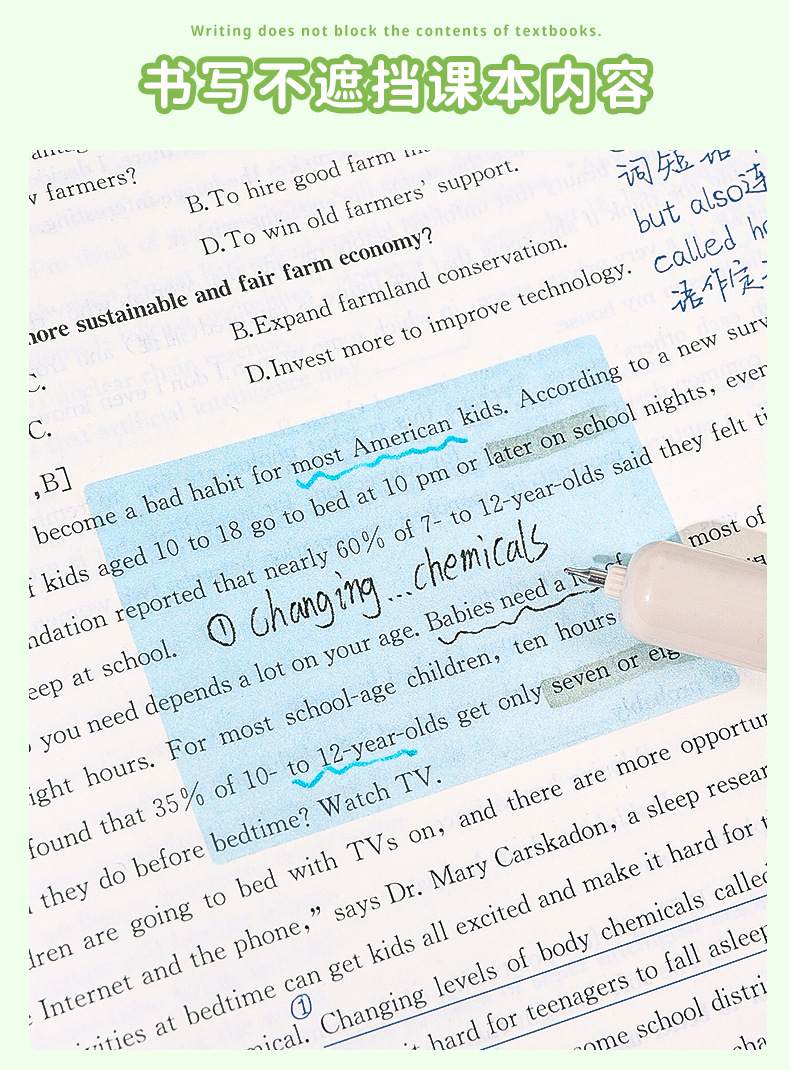 Writing does not block the contents of textbooks.
书写不遮挡课本内容
farmers?
B.To hire good farm
D.To win old farmers' support.
more sustainable and fair farm economy?
B.Expand farmland conservation.
D.Invest more to improve technology.
C.
C.
词短语
but also连
called
语作定
,B]
become a bad habit for most American kids. According to a new surv
kids aged 10 to 18 go to bed at 10 pm or later on school nights, even
ndation reported that nearly 60% of 7- to 12-year-olds said they felt ti
eep at school.
① changing...chemicals
most of
you need depends a lot on your age. Babies need a lot of
ight hours. For most school-age children, ten hours
found that 35% of 10- to 12-year-olds get only seven or eig
they do before bedtime? Watch TV.
dren are going to bed with TVs on, and there are more opportun
Internet and the phone," says Dr. Mary Carskadon, a sleep resear
ivities at bedtime can get kids all excited and make it hard for t
①
mical. Changing levels of body chemicals called
it hard for teenagers to fall asleep
some school distri